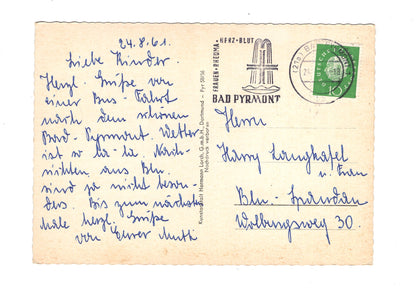 24.8.61.
Liebe Kinder.
Herzl. Grüße von
einer Bus-Fahrt
nach dem schönen
Bad-Pyrmont. Wetter
ist so la-la. Nach-
richten aus Bln.
sind ja nicht beson-
ders. Bis zum nächsten
Male herzl. Grüße
von Eurer Mutti
Kunstanstalt Hermann Lorch, G.m.b.H., Dortmund - Pyr 50/56
Nachdruck verboten
FRAUEN · RHEUMA · HERZ · BLUT
BAD PYRMONT
(21a) BAD
DEUTSCHE
10
Herrn
Harry Langkafel
u. Frau
Bln.-Spandau
Wolbergsweg 30.